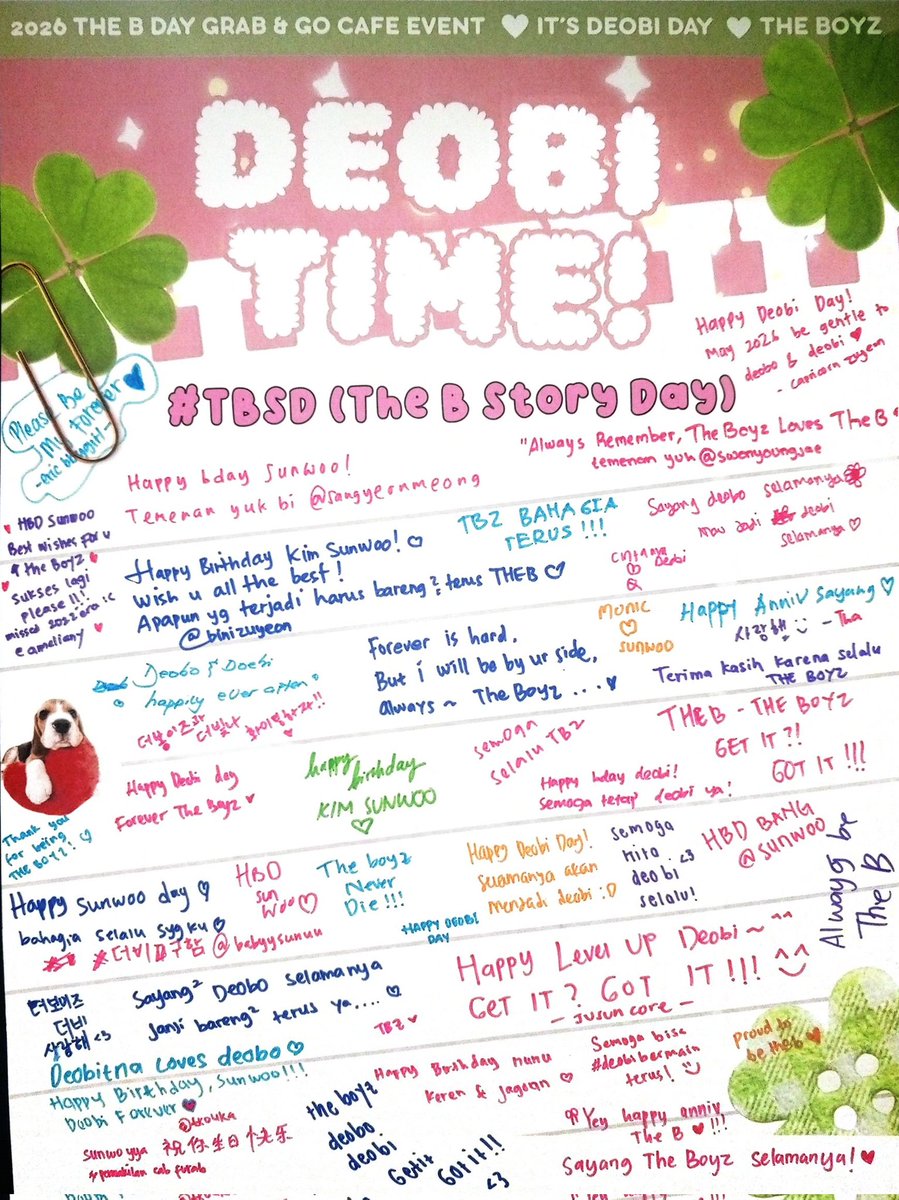 2026 THE B DAY GRAB & GO CAFE EVENT ♥ IT'S DEOBI DAY ♥ THE BOYZ
DEOBI
TIME!
#TBSD (The B Story Day)
Happy Deobi Day!
May 2026 be gentle to
deobo & deobi ♥
- capricorn zuyeon
Please Be
My Forever
- eric bbangirl -
"Always Remember, The Boyz Loves The B"
temenan yuk @swonyoungjae
Happy bday Sunwoo!
Temenan yuk bi @sangyeonmeong
♥ HBD SUNWOO
Best wishes for u
& The BoyZ ♥
♥ Sukses lagi
please !!
missed 2022 era ic
@ameliany ♥
Happy Birthday Kim Sunwoo! ♡
Wish u all the best!
Apapun yg terjadi harus bareng² terus THEB ♡
@binizuyeon
TBZ BAHAGIA
TERUS !!!
Sayang deobo selamanya
mau jadi deobi
selamanya ♡
Cintanya
Deobi
Forever is hard,
But i will be by ur side,
always ~ The Boyz ... ♡
MONIC
♡
SUNWOO
Happy Anniv Sayang ♡
사랑해 - Tha
Terima kasih karena selalu
THE BOYZ
Deobo & Doebi
happily ever after
더보이즈랑
더비
화이팅하자!!
Happy Deobi day
Forever The Boyz ♥
happy
birthday
KIM SUNWOO
♡
semogn
selalu TBZ
THE B - THE BOYZ
GET IT ?!
GOT IT !!!
Happy bday deobi!
Semoga tetap deobi ya!
Thank you
for being
THE BOYZ! ♡
Happy Sunwoo day ♡
bahagia selalu sygku ♡
#더비 @babyysunuu
HBD
SUN
WOO ♡
The boyz
Never
Die !!!
HAPPY DEOBI
DAY
Happy Deobi Day!
Selamanya akan
menjadi deobi :D
semoga
kita
deobi <3
selalu!
HBD BANG
@SUNWOO
Always be
The B
더보이즈
더비
사랑해 <3
Sayang² Deobo selamanya
Janji bareng² terus ya.... ♡
TBZ ♥
Happy Level Up Deobi~ ^^
GET IT? GOT IT!!! ^^
- Jusun core -
Deobitna Loves deobo ♡
Happy Birthday, Sunwoo!!!
Deobi Forever ♥
@tkouka
Happy Birthday nunu
Keren & Jagoan ♡
Semoga bisa
#deobibermain
terus!
proud to
be the b ♥
sunwoo yya 祝你生日快乐
the boyz
deobo
deobi
Getit
Got it!!
<3
Yey happy anniv
The B ♥!!!
Sayang The Boyz selamanya! ♥